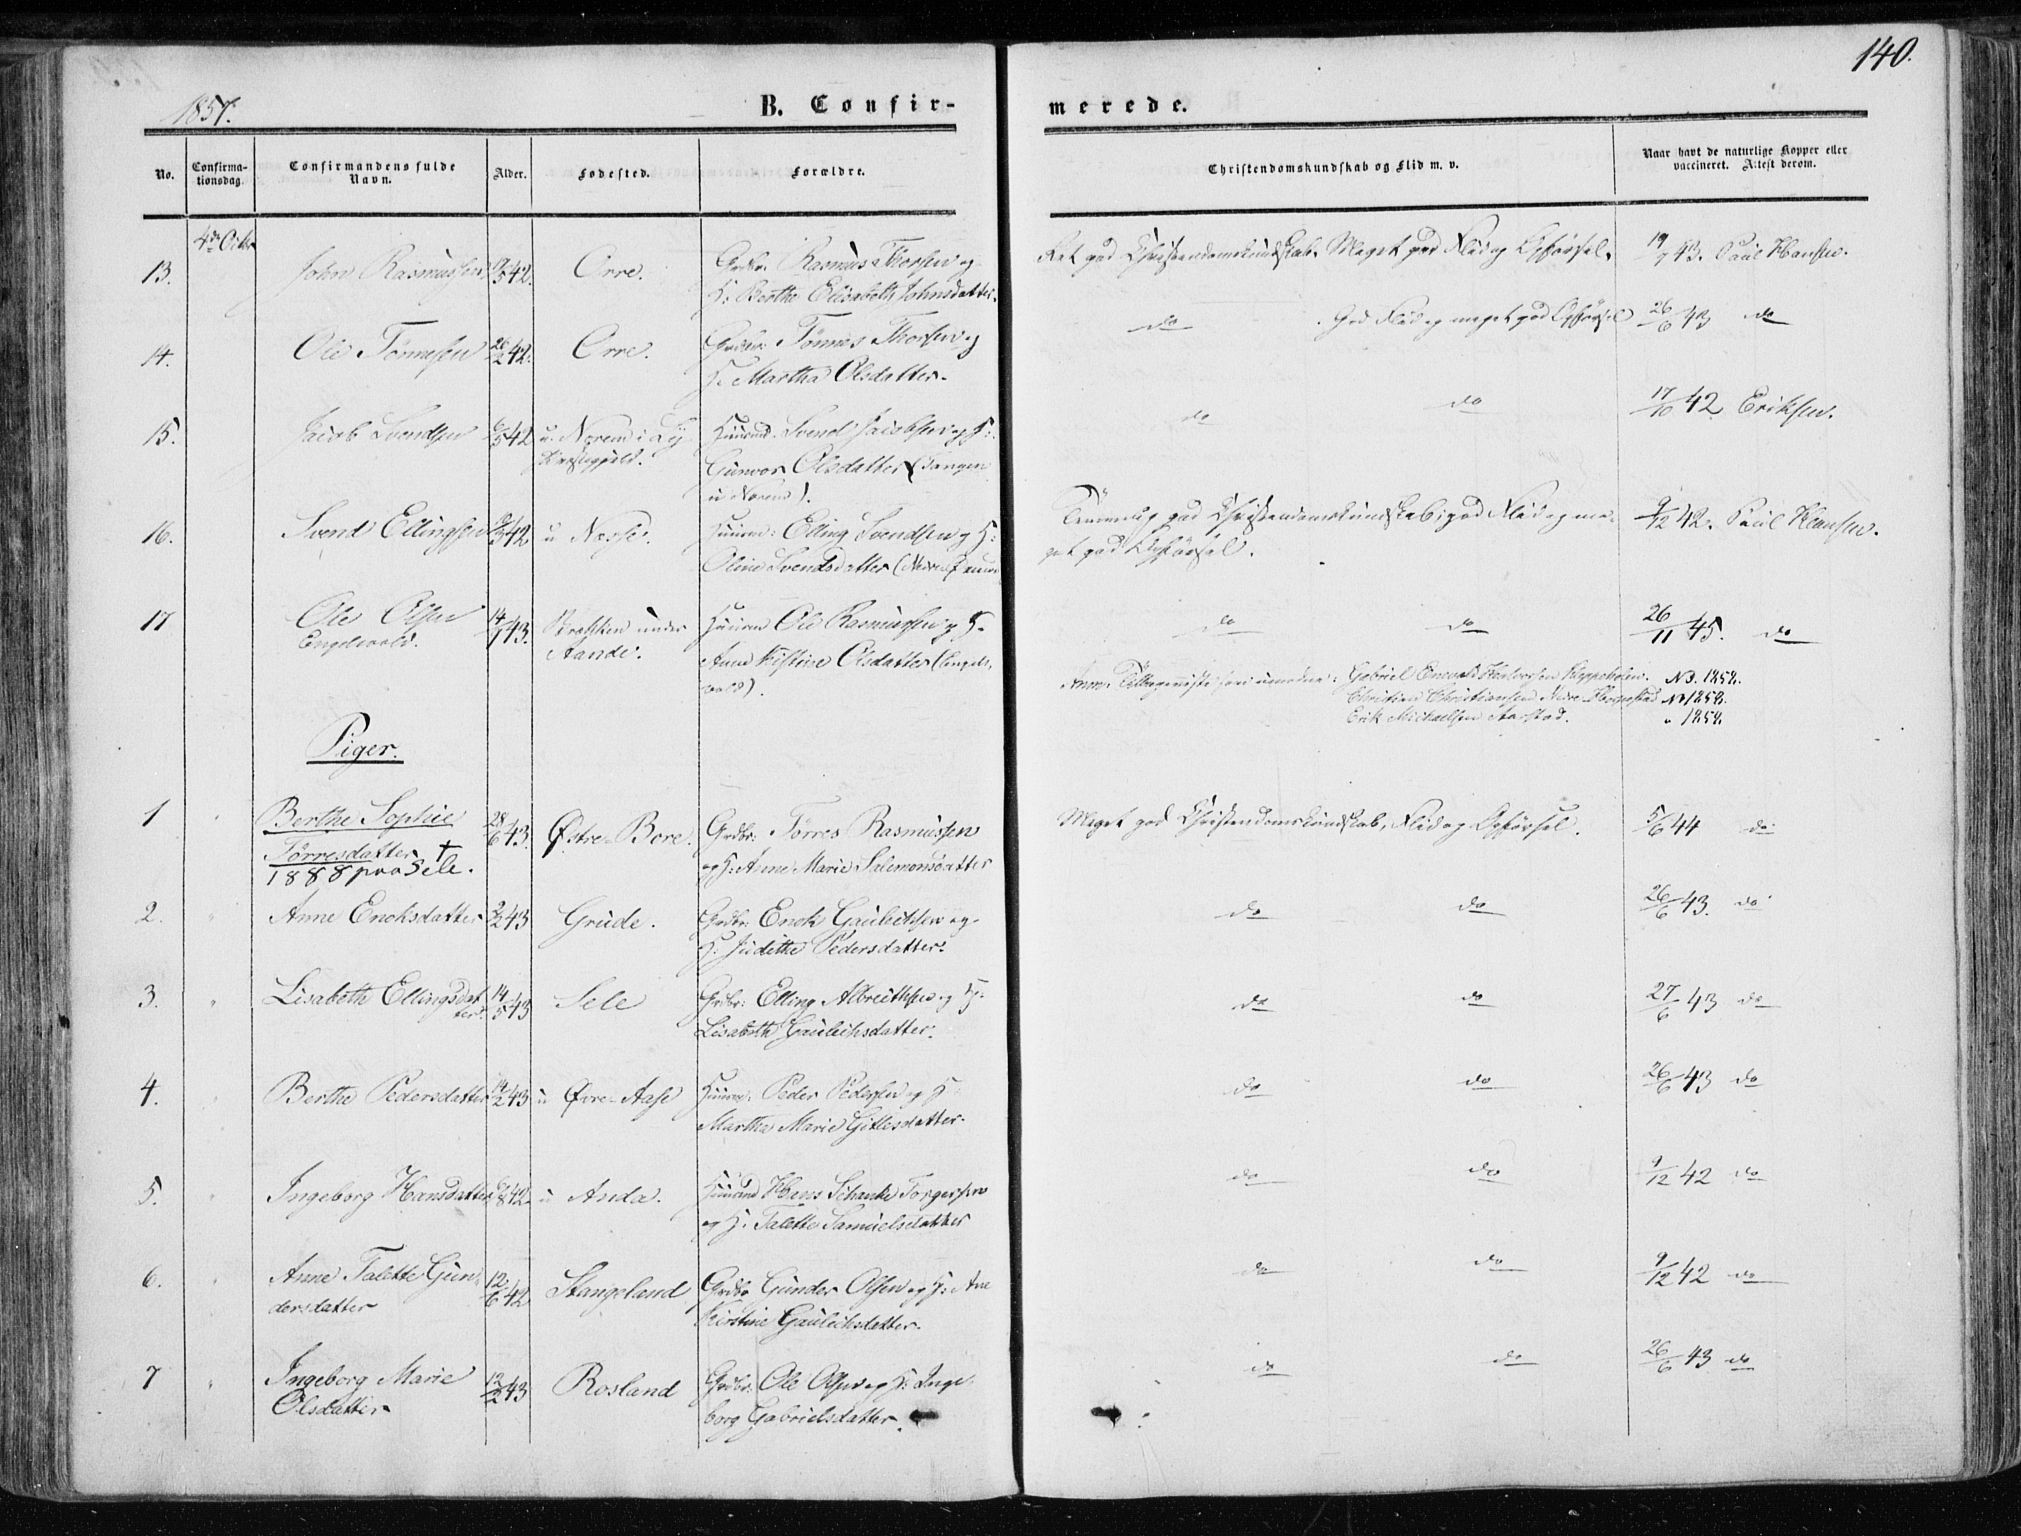 140.
1857.
B. Confir-
merede.
No.
Confirma-
tionsdag.
Confirmandens fulde
Navn.
Alder.
Fødested.
Forældre.
Christendomskundskab og Flid m. v.
Naar havt de naturlige Kopper eller
vaccineret. Attest derom.
4de Octbr
13. John Rasmussen 42. Orre. Grdbr: Rasmus Thorsen og
H: Berthe Elisabeth Johnsdatter.
Ret god Christendomskundskab. Meget god Flid og Opførsel. 19/7 43. Paul Hansen.
14. Ole Tønnesen 26/2 42. Orre. Grdbr: Tønnes Thorsen og
H. Martha Olsdatter.
do . God Flid og meget god Opførsel 26/6 43 do
15. Jacob Svendsen 6/5 42 u. Norem i
Præstegjeld.
Huusmd. Svend Jacobsen og H:
Gunvor Olsdatter (Tangen
u Norem).
do do 17/10 42 Eriksen.
16. Svend Ellingsen 42 u Nærhe. Huusm: Elling Svendsen og H:
Oline Svendsdatter (Nedre
god Christendomskundskab, god Flid og me-
get god Opførsel.
9/12 42. Paul Hansen.
17 Ole Olsen
Engelvold.
14/1 43. Brakken under
Aande.
Huusm Ole Rasmussen og H.
Anne Kistine Olsdatter (Engels,
vold).
do do 26/11 45. do
Anm. Gabriel Halvorsen Kleppeholen. N3. 1858.
Christian Christiansen Nedre Haugstad N 1858.
Erik Michaelsen Aarstad. " 1858.
Piger.
1 " Berthe Sophie
Tørresdatter †
1888 paa Sele.
28/6 43. Østre-Bore. Grdbr: Tørres Rasmussen
og H: Anne Marie Salomonsdatter
Meget god Christendomskundskab, Flid og Opførsel. 5/6 44 do
2. " Anne Enoksdatter 2/2 43 Grude. Grdbr: Enok Gaulichsen og
H: Judithe Pedersdatter.
do do 26/6 43. do
3. " Lisabeth Ellingsdat
ter.
14/5 43 Sele Grdbr: Elling Albreithsen og H:
Lisabeth Gaulichsdatter.
do do 27/6 43 do
4. " Berthe Pedersdatter 14/2 43 u Øvre-Aase Huusm: Peder Pedersen og H
Martha Marie Gitlesdatter.
do do 26/6 43 do
5. " Ingeborg Hansdatter 42 u Anda. Huusmd Hans Schanke Torgersen
og H. Talette Samuelsdatter
do do 9/12 42 do
6. " Anne Talette Gun-
dersdatter
12/6 42 Stangeland Grdbr Gunder Olsen og H: Ane
Kirstine Gaulichsdatter.
do do 9/12 42 do
7 " Ingeborg Marie
Olsdatter
12/2 43 Rosland Grdbr. Ole Olsen og H: Inge-
borg Gabrielsdatter.
do do 26/6 43 do